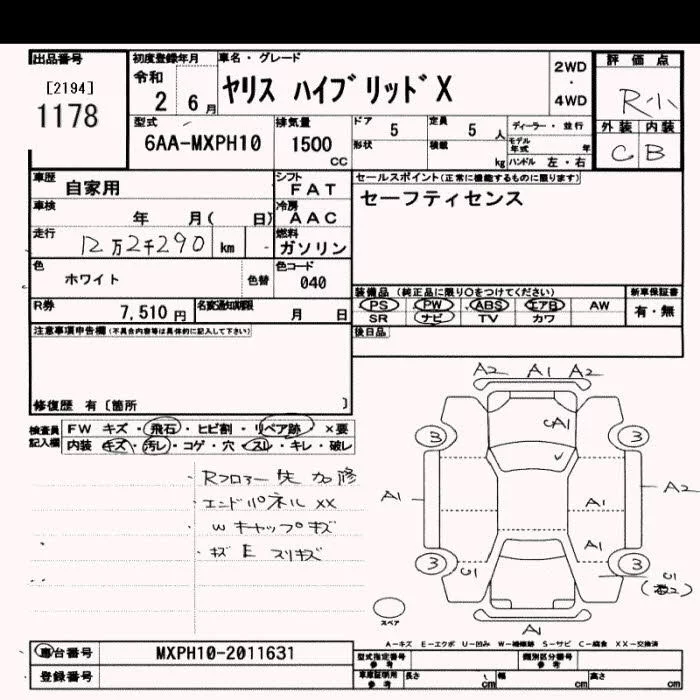 出品番号
[2194]
1178
初度登録年月
令和
2 6月
車名・グレード
ヤリス ハイブリッド X
2WD
・
4WD
評価点
R小
外装 内装
C B
型式
6AA-MXPH10
排気量
1500
CC
ドア
5
形状
定員
5 人
積載
kg
ディーラー・並行
モデル年式 年
ハンドル 左・右
車歴
自家用
シフト
FAT
車検
年 月( 日)
冷房
AAC
走行
12万2千290 km
燃料
ガソリン
色
ホワイト
色替
色コード
040
R券
7,510 円
名変通知期限
月 日
セールスポイント(正常に機能するものに限ります)
セーフティセンス
装備品(純正品に限り○をつけてください)
PS PW ABS エアB AW
SR ナビ TV カワ
新車保証書
有・無
後日品
注意事項申告欄(不具合内容等は具体的に記入して下さい)
修復歴 有〔箇所 〕
検査員記入欄
FW キズ・飛石・ヒビ割・リペア跡 ×要
内装 キズ・汚レ・コゲ・穴・スレ・キレ・破レ
・Rフロアー 先 加修
・エンドパネル XX
・W キャップキズ
・キズ E スリキズ
A2 A1 A2
A1
3 3
A1 A1 A2
A1
3 3
U1
スペア
A1
A-キズ E-エクボ U-凹み W-補修跡 S-サビ C-腐食 XX-交換済
車台番号
MXPH10-2011631
登録番号
型式指定番号
参考
類別区分番号
参考
車庫証明用
参考
長さ cm
幅 cm
高さ cm